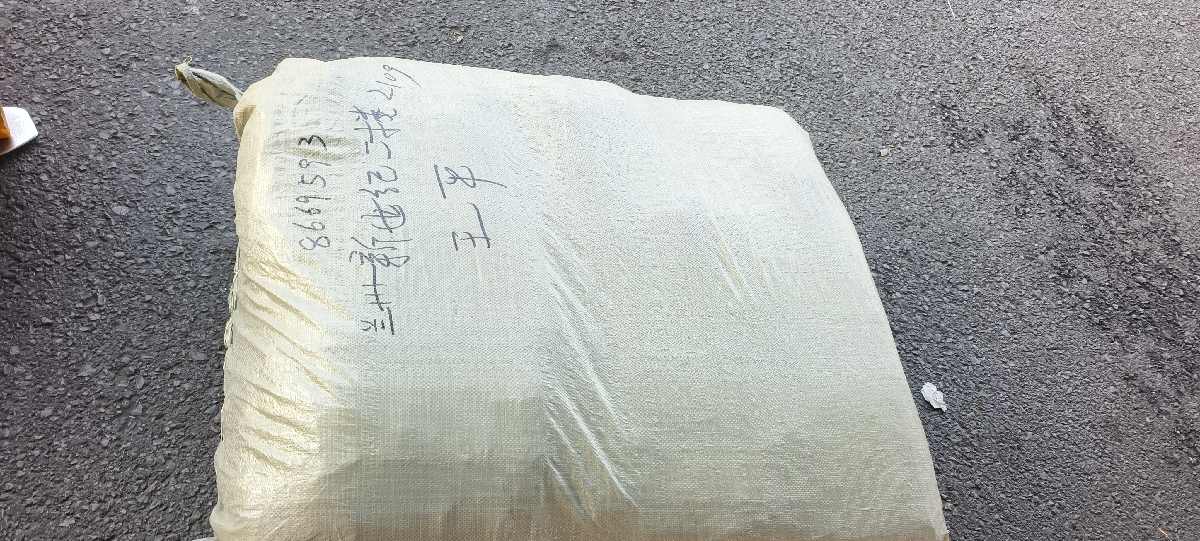 8669593
兰州新世纪二楼2109
王平